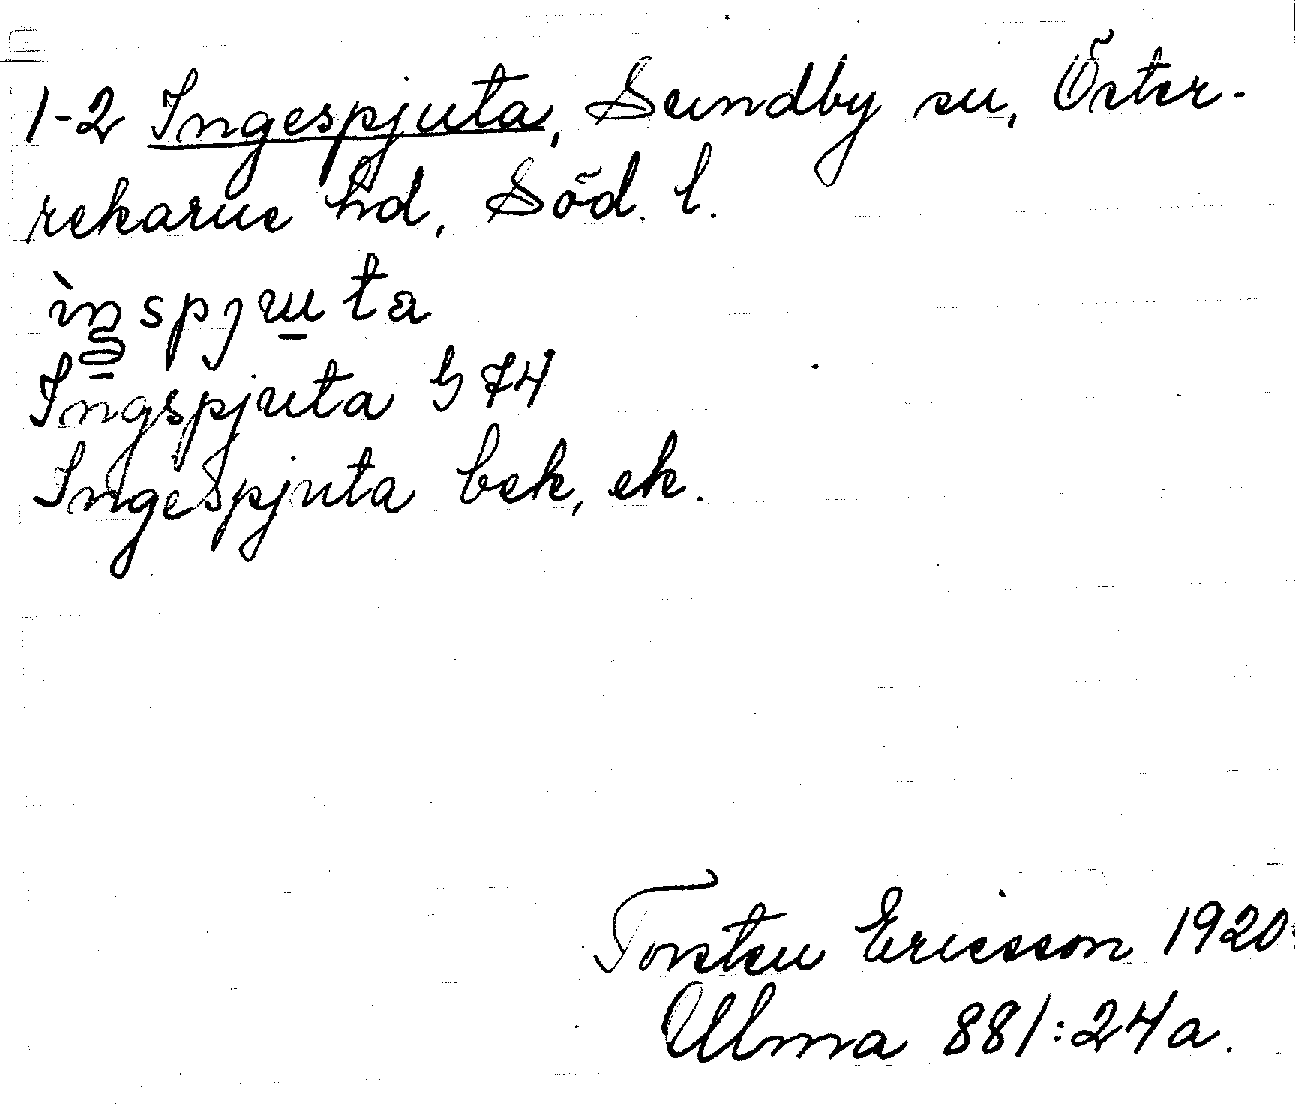 1-2 Ingespjuta, Sundby sn, Öster-
rekarne hd, Söd. l.
Ingspjuta G 74
Ingespjuta bek, ek.
Torsten Ericsson 1920
Ulma 881:24a.